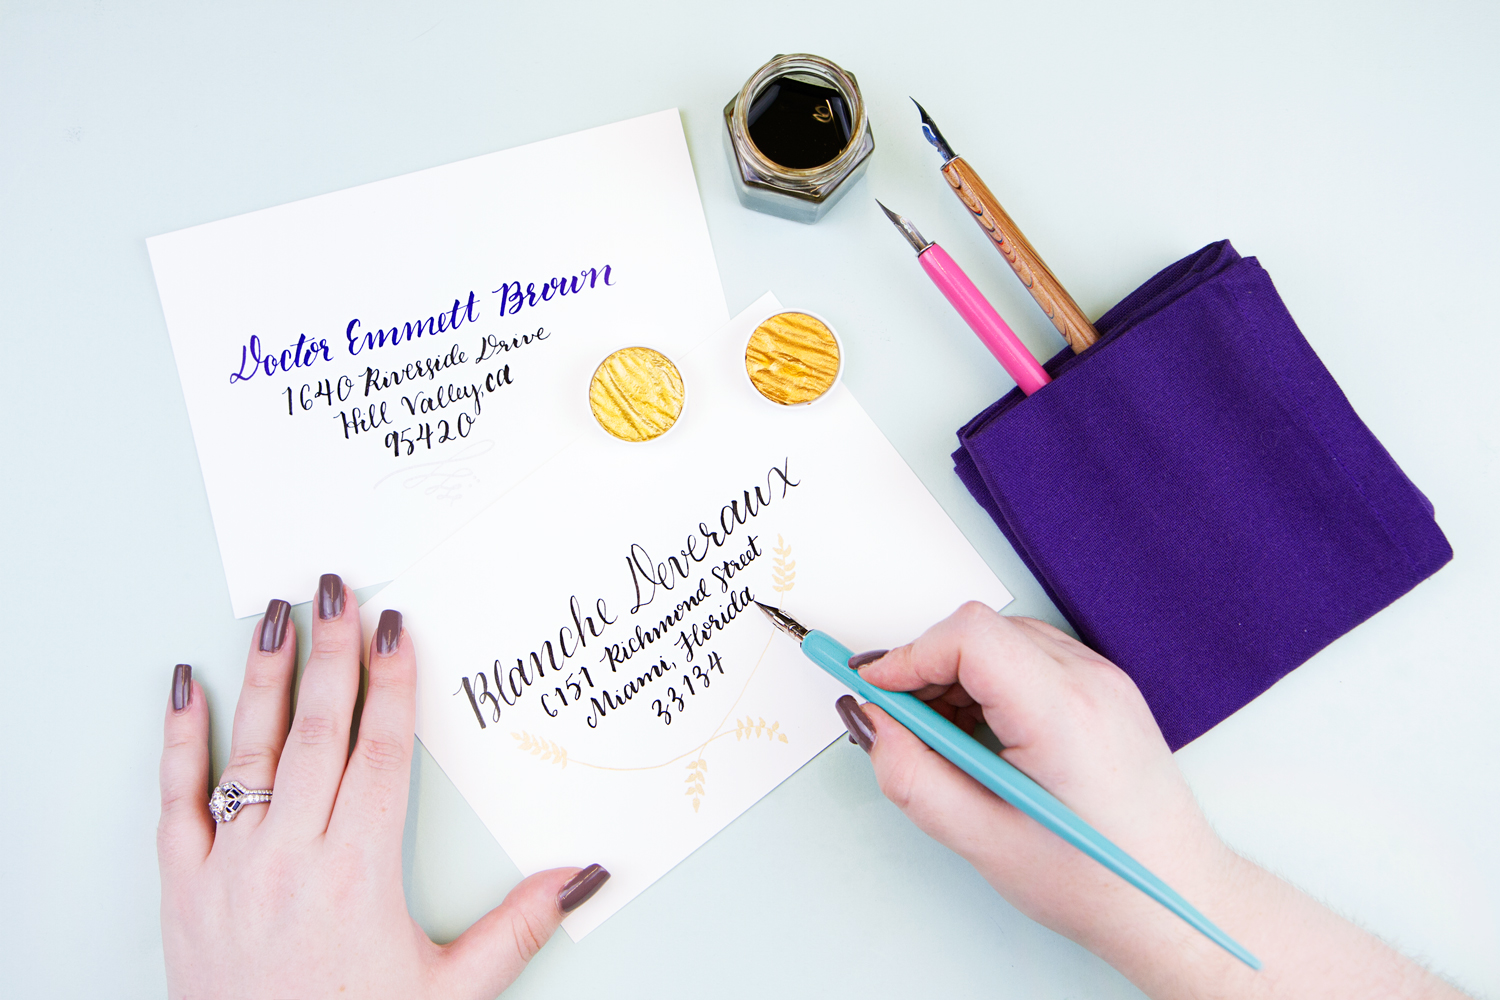 Doctor Emmett Brown
1640 Riverside Drive
Hill Valley, ca
95420
Blanche Deveraux
6151 Richmond Street
Miami, Florida
33134